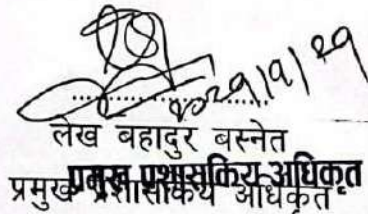 लेख वहादुर बस्नेत
प्रमुख प्रशासकिय अधिकृत
प्रमुख प्रशासकिय अधिकृत